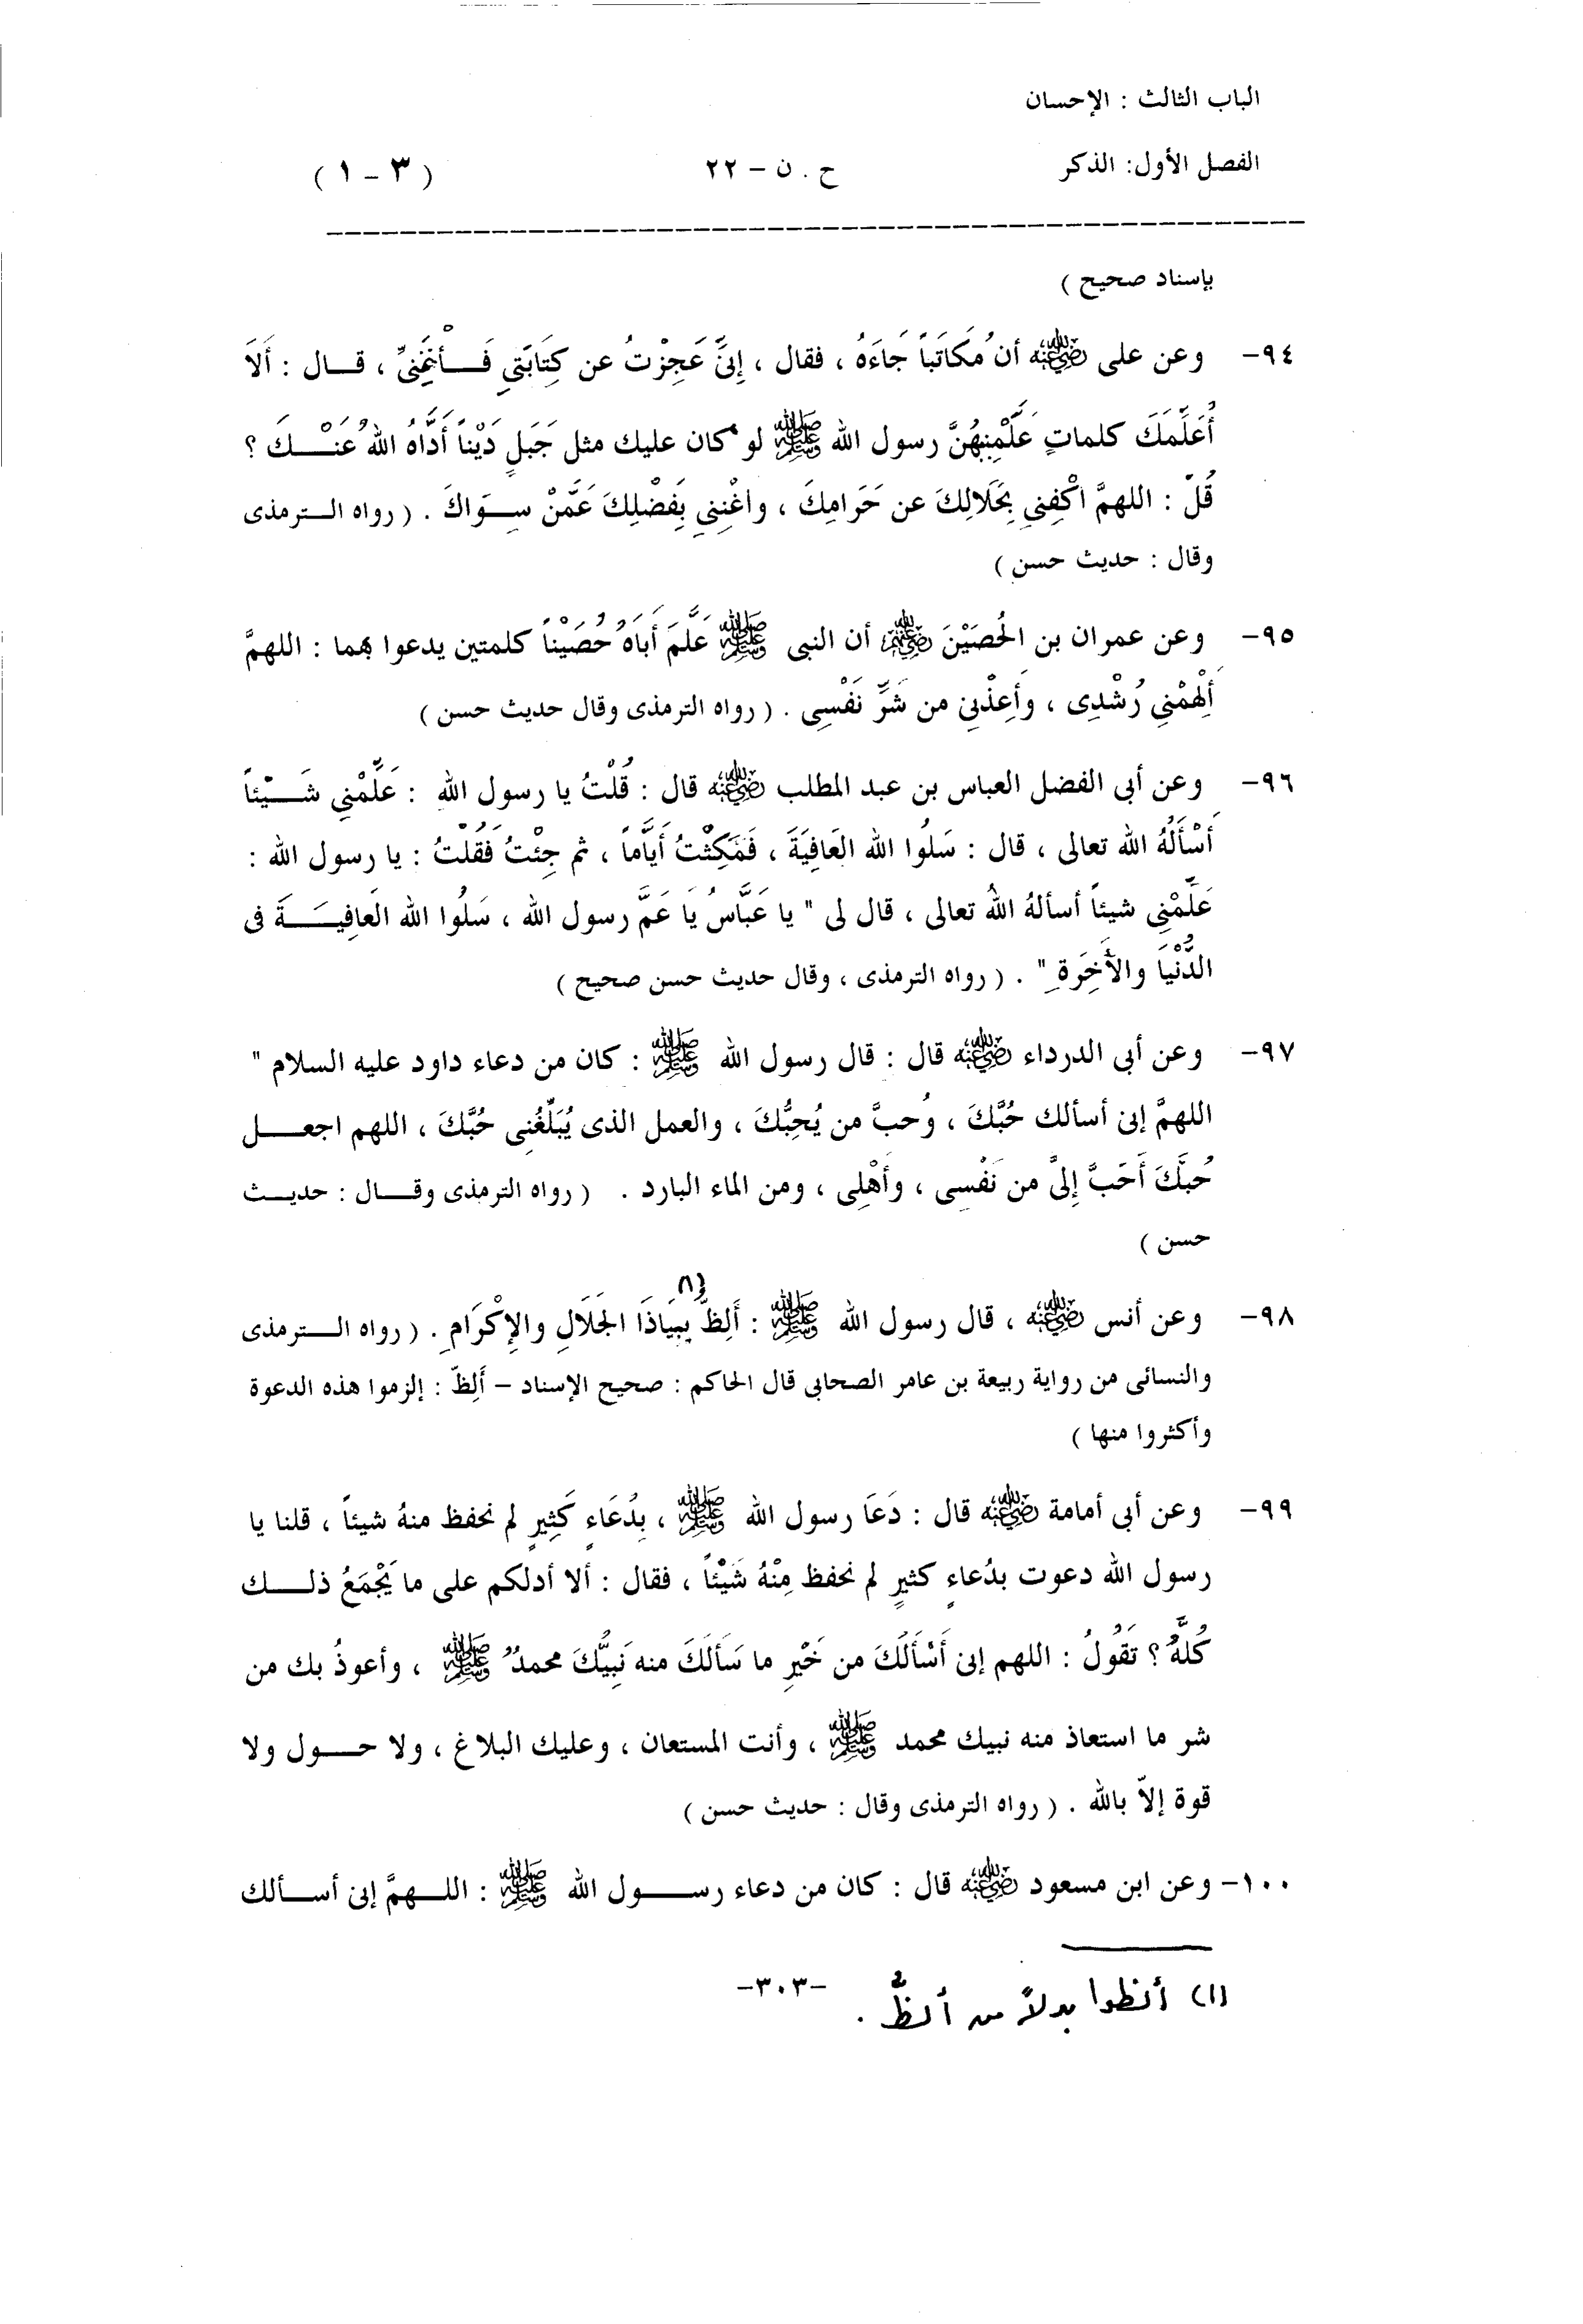 الباب الثالث : الإحسان
الفصل الأول: الذكر ح . ن – ٢٢ ( ٣ – ١ )
بإسناد صحيح )
٩٤– وعن على رضي الله عنه أن مُكَاتَباً جَاءَهُ ، فقال ، إِنىَّ عَجِزْتُ عن كِتَابَتىِ فَــأْنجَنِىِّ ، قــال : أَلاَ
أُعَلِّمَكَ كلماتٍ عَلَّمْنِيهُنَّ رسول الله ﷺ لو كان عليك مثل جَبَلٍ دَيْناً أَدَّاهُ اللهُ عَنْــكَ ؟
قُلْ : اللهمَّ اكْفِنىِ بِحَلالِكَ عن حَرَامِكَ ، واغْنِنىِ بِفَضْلِكَ عَمَّنْ سِــوَاكَ . ( رواه الــترمذى
وقال : حديث حسن )
٩٥– وعن عمران بن الحُصَيْنَ رضي الله عنهم أن النبى ﷺ عَلَّمَ أَبَاهُ حُصَيْناً كلمتين يدعوا بهما : اللهمَّ
أَلْهِمْنىِ رُشْدِى ، وَأَعِذْنىِ من شَرِّ نَفْسِى . ( رواه الترمذى وقال حديث حسن )
٩٦– وعن أبى الفضل العباس بن عبد المطلب رضي الله عنه قال : قُلْتُ يا رسول الله : عَلِّمْنىِ شَــيْئاً
أَسْأَلُهُ الله تعالى ، قال : سَلُوا الله العَافِيَةَ ، فَمَكِثْتُ أَيَّاماً ، ثم جِئْتُ فَقُلْتُ : يا رسول الله :
عَلِّمْنِى شيئاً أسألهُ اللهُ تعالى ، قال لى " يا عَبَّاسُ يَا عَمَّ رسول الله ، سَلُوا الله العَافِيَــةَ فى
الدُّنْيَا والأَخِرَةِ " . ( رواه الترمذى ، وقال حديث حسن صحيح )
٩٧– وعن أبى الدرداء رضي الله عنه قال : قال رسول الله ﷺ : كان من دعاء داود عليه السلام "
اللهمَّ إنى أسألك حُبَّكَ ، وُحبَّ من يُحِبُّكَ ، والعمل الذى يُبَلِّغُنِى حُبَّكَ ، اللهم اجعــل
حُبَّكَ أَحَبَّ إِلىَّ من نَفْسِى ، وأَهْلِى ، ومن الماء البارد . ( رواه الترمذى وقــال : حديــث
حسن )
٩٨– وعن أنس رضي الله عنه ، قال رسول الله ﷺ : أَلِظّ (١) بِيَاذَا الجَلاَلِ والإِكْرَامِ . ( رواه الــترمذى
والنسائى من رواية ربيعة بن عامر الصحابى قال الحاكم : صحيح الإسناد – أَلِظّ : إلزموا هذه الدعوة
وأكثروا منها )
٩٩– وعن أبى أمامة رضي الله عنه قال : دَعَا رسول الله ﷺ ، بِدُعَاءٍ كَثِيرٍ لم نحفظ منهُ شيئاً ، قلنا يا
رسول الله دعوت بدُعاءٍ كثيرٍ لم نحفظ مِنْهُ شَيْئاً ، فقال : ألا أدلكم على ما يَجْمَعُ ذلــك
كُلَّهُ ؟ تَقُولُ : اللهم إنى أَسْأَلَكَ من خَيْرِ ما سَأَلَكَ منه نَبِيُّكَ محمدٌ ﷺ ، وأعوذُ بك من
شر ما استعاذ منه نبيك محمد ﷺ ، وأنت المستعان ، وعليك البلاغ ، ولا حــول ولا
قوة إلاّ بالله . ( رواه الترمذى وقال : حديث حسن )
١٠٠– وعن ابن مسعود رضي الله عنه قال : كان من دعاء رســـول الله ﷺ : اللــهمَّ إنى أســألك
(١) ألظوا بدلاً من ألظُّ .
–٣٠٣–